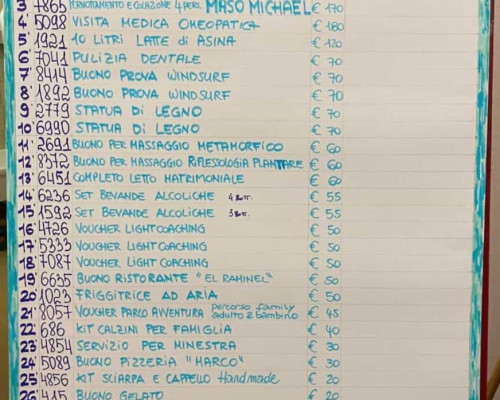 3° 7865 PERNOTTAMENTO E COLAZIONE 4 PERS. MASO MICHAEL € 170
4° 5098 VISITA MEDICA OMEOPATICA € 180
5° 1921 10 LITRI LATTE di ASINA € 120
6° 7041 PULIZIA DENTALE € 70
7° 8414 BUONO PROVA WINDSURF € 70
8° 1892 BUONO PROVA WINDSURF € 70
9° 2779 STATUA di LEGNO € 70
10° 6990 STATUA di LEGNO € 70
11° 2691 BUONO PER MASSAGGIO METAMORFICO € 60
12° 8372 BUONO PER MASSAGGIO RIFLESSOLOGIA PLANTARE € 60
13° 6451 COMPLETO LETTO MATRIMONIALE € 60
14° 6236 SET BEVANDE ALCOLICHE 4 BOTT. € 55
15° 1592 SET BEVANDE ALCOLICHE 3 BOTT. € 55
16° 4726 VOUCHER LIGHT COACHING € 50
17° 5333 VOUCHER LIGHT COACHING € 50
18° 7087 VOUCHER LIGHT COACHING € 50
19° 6635 BUONO RISTORANTE "EL RAMINEL" € 50
20° 1023 FRIGGITRICE AD ARIA € 50
21° 8057 VOUCHER PARCO AVVENTURA percorso family adulto 2 bambino € 45
22° 686 KIT CALZINI PER FAMIGLIA € 40
23° 4854 SERVIZIO PER MINESTRA € 30
24° 5089 BUONO PIZZERIA "MARCO" € 30
25° 4856 KIT SCIARPA E CAPPELLO Handmade € 20
26° 415 BUONO GELATO € 20